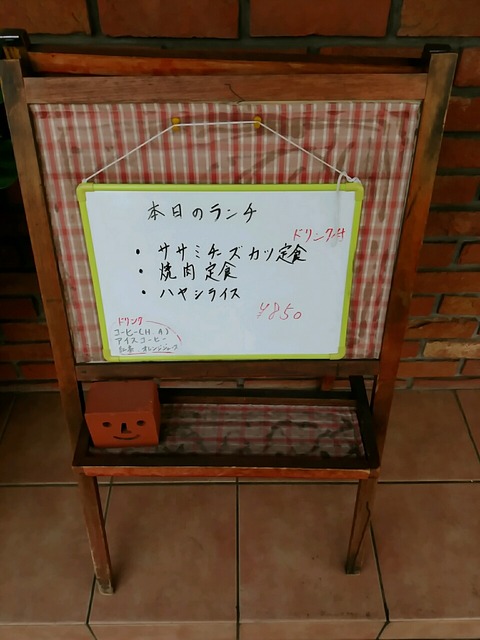 本日のランチ
ドリンク付
・ササミチーズカツ定食
・焼肉定食
・ハヤシライス
¥850
ドリンク
コーヒー(H A)
アイスコーヒー
紅茶 オレンジジュース